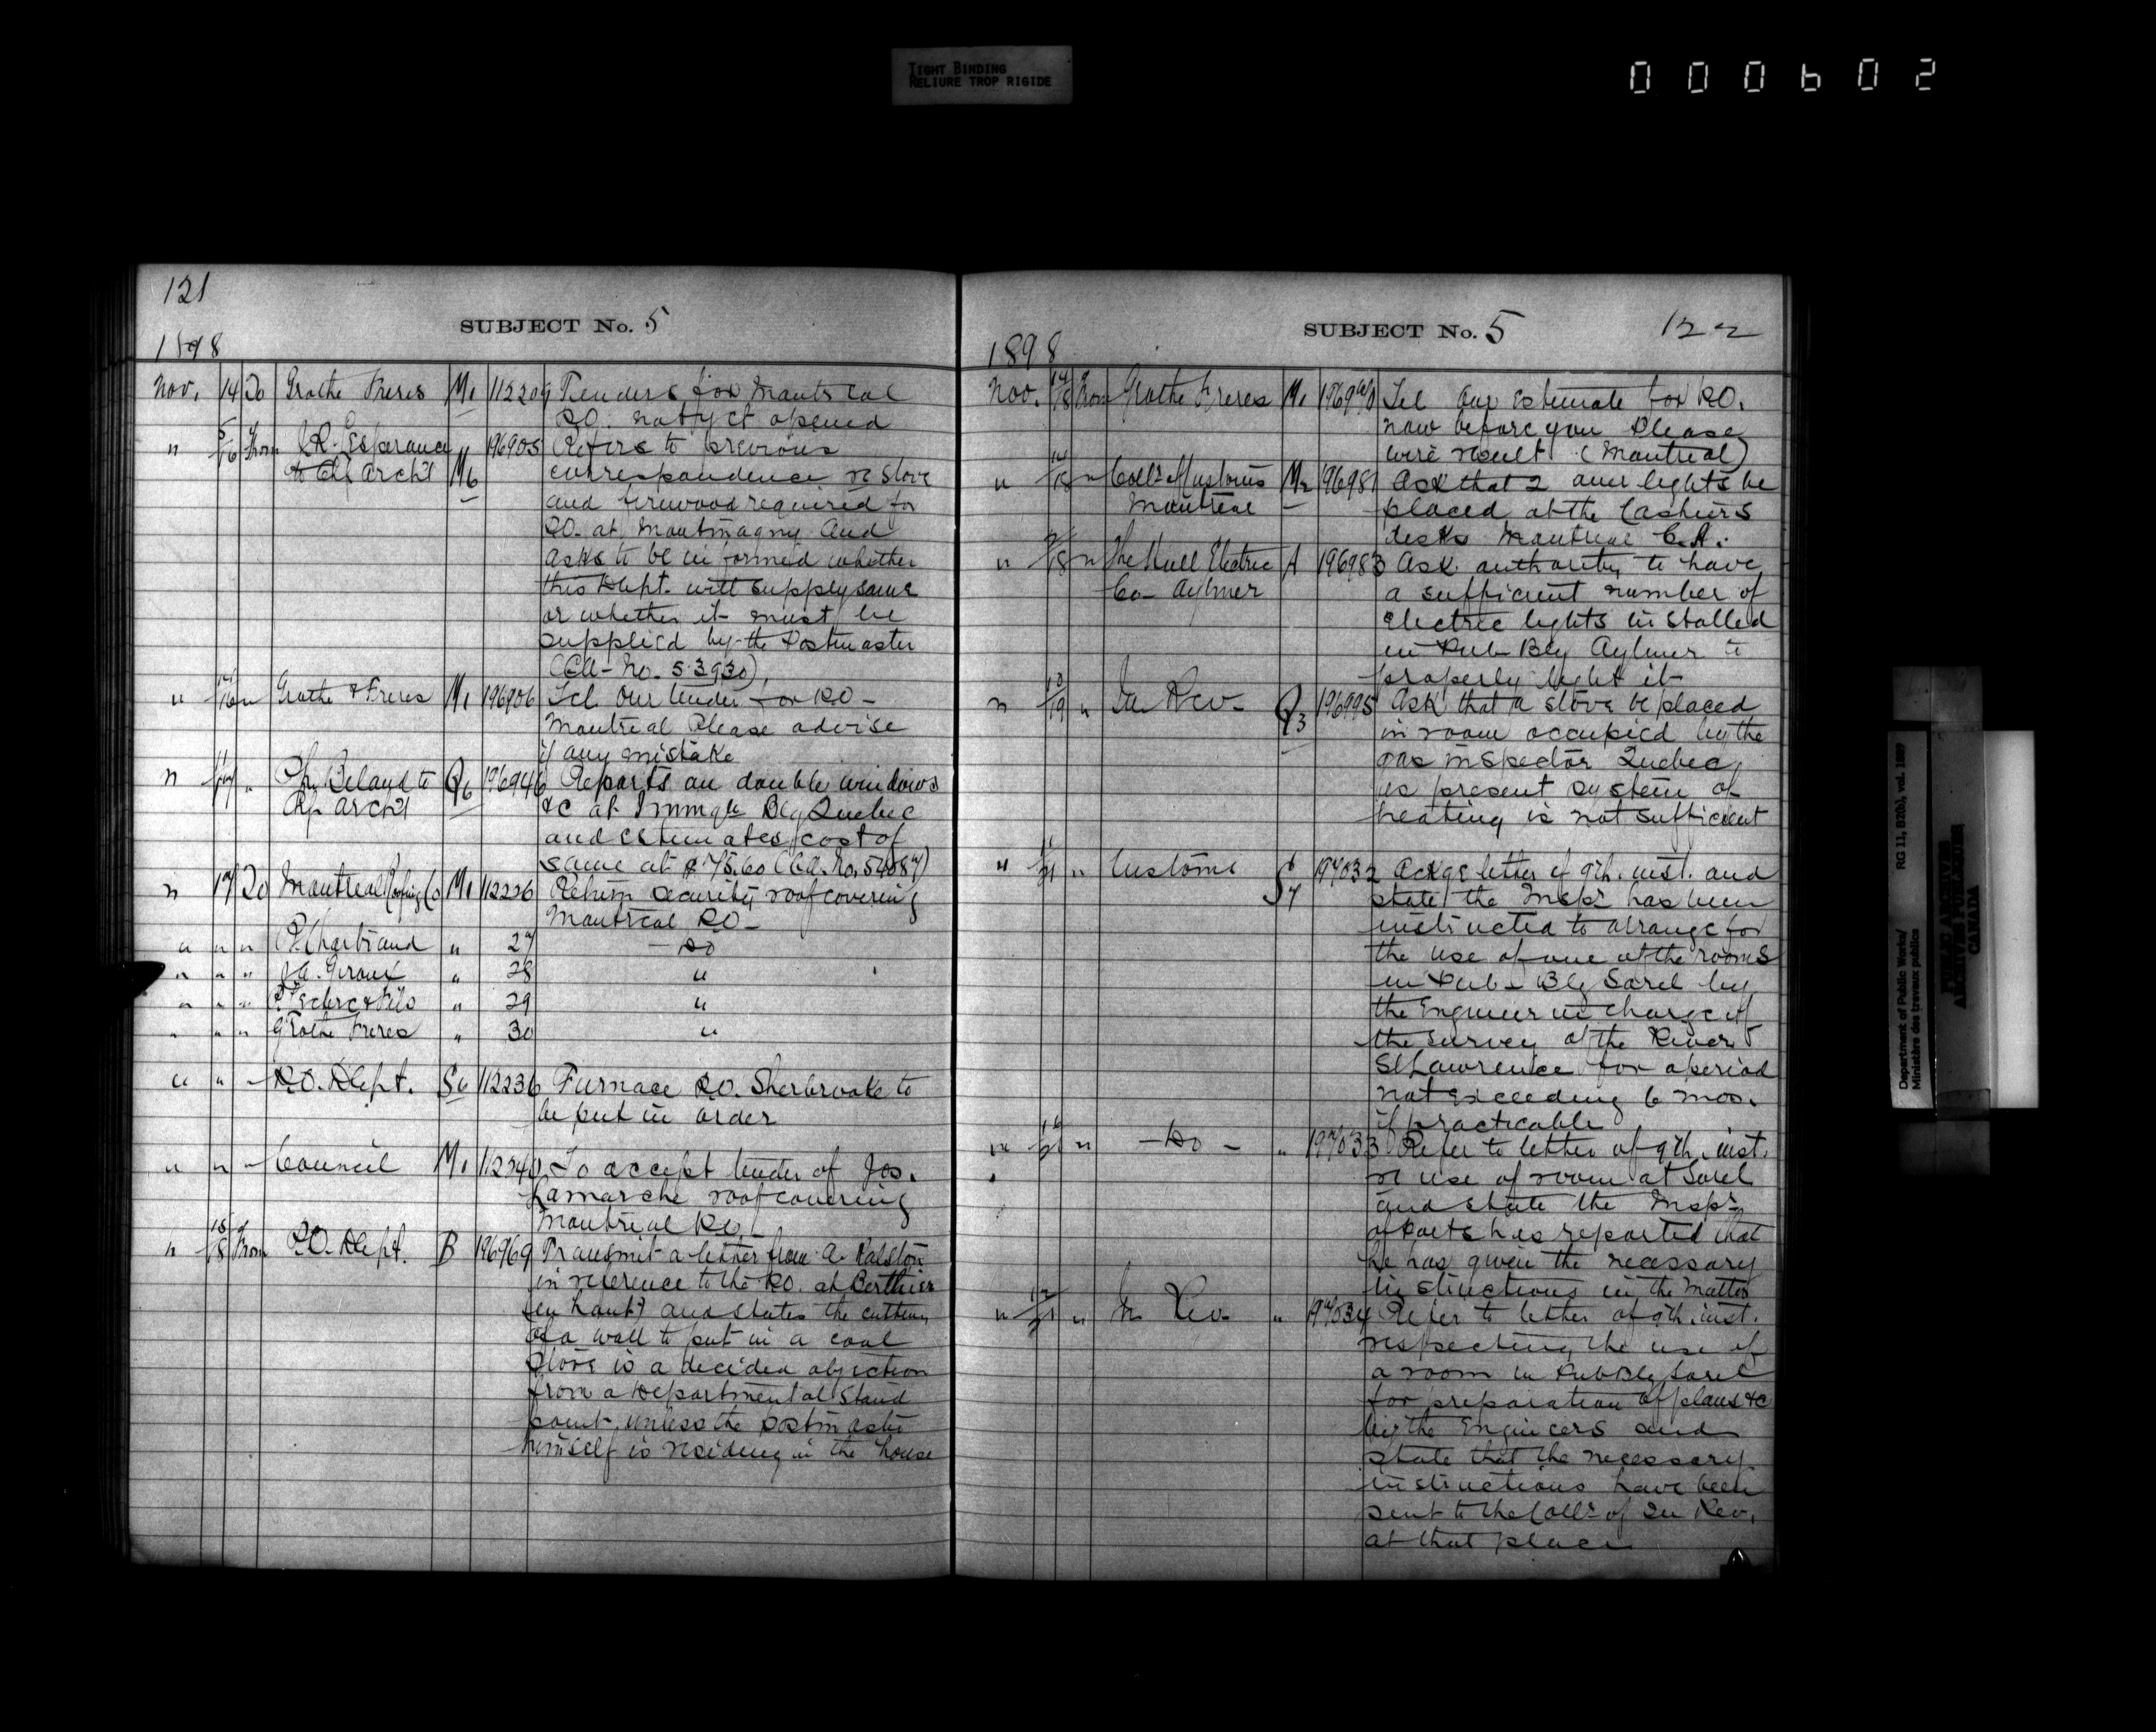 TIGHT BINDING
RELIURE TROP RIGIDE
000602
121
SUBJECT No. 5
1898
Nov. 14 To Grothe Freres M1 112209 Tenders for Montreal
P.O. not yet opened
" 5/16 From J.R. Esperance 196905 Refers to previous
to Chf Archt M6 correspondence re stove
and firewood required for
P.O. at Montmagny and
asks to be informed whether
this Dept. will supply same
or whether it must be
supplied by the Postmaster
(CA- No. 53930)
" 14/16 " Grothe & Freres M1 196906 Tel Our tender for P.O-
Montreal Please advise
if any mistake
" 11/17 " Ph. Beland to Q6 196946 Reports on double windows
Archt &c at Immgtn Blg Quebec
and estimates cost of
same at $75.60 (CA. No. 54087)
" 17 To Montreal Roofing Co M1 112226 Return security roof covering
Montreal P.O-
" " " P. Chartrand " 27 - Do
" " " J.A. Giroux " 28 "
" " " & Fils " 29 "
" " " Grothe Freres " 30 "
" " - P.O. Dept. S6 112236 Furnace P.O. Sherbrooke to
be put in order
" " - Council M1 112240 To accept tender of Jos.
Lamarche roof covering
Montreal P.O.
" 15/18 From P.O. Dept. B 196969 Transmit a letter from A. Ralston
in reference to the P.O. at Berthier
(en haut) and states the cutting
of a wall to put in a coal
stove is a decided objection
from a Departmental stand
point unless the postmaster
himself is residing in the house
SUBJECT No. 5 122
1898
Nov. 17/18 From Grothe Freres M1 Tel Our estimate for P.O.
now before you Please
wire result (Montreal)
" 14/18 " Collr of Customs M2 196981 Ask that 2 lights be
Montreal placed at the Cashiers
desks Montreal C.H.
" /18 " The Hull Electric A 196983 Ask authority to have
Co- Aylmer a sufficient number of
electric lights installed
in Pub- Blg Aylmer to
properly light it
" 18/19 " In Rev- Q3 196995 Ask that a stove be placed
in room occupied by the
gas inspector Quebec,
as present system of
heating is not sufficient
" /21 " Customs S7 197032 Ackge letter of 9th. inst. and
state the Inspr has been
instructed to arrange for
the use of one of the rooms
in Pub- Blg Sorel by
the Engineer in charge of
the survey of the River
St Lawrence for a period
not exceeding 6 mos.
if practicable
" /21 " - Do - " 197033 Refer to letter of 9th. inst.
re use of room at Sorel
and state the Inspr
of Ports has reported that
he has given the necessary
instructions in the matter
" /21 " In Rev- " 197034 Refer to letter of 9th. inst.
respecting the use of
a room in Pub Blg Sorel
for preparation of plans &c
by the Engineers and
state that the necessary
instructions have been
sent to the Collr of In Rev.
at that place
Department of Public Works/
Ministère des travaux publics
RG 11, B2(b), vol. 1897
PUBLIC ARCHIVES
ARCHIVES PUBLIQUES
CANADA